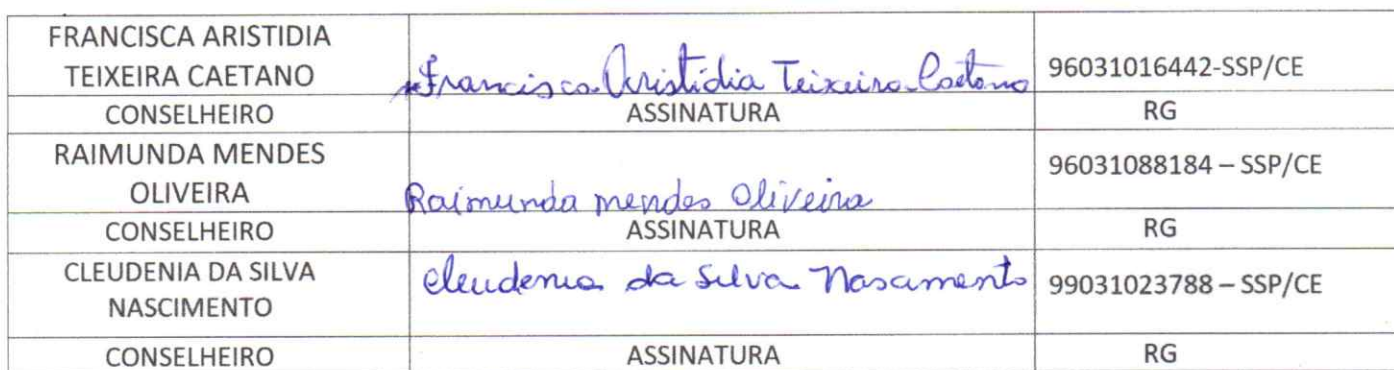 FRANCISCA ARISTIDIA
TEIXEIRA CAETANO
Francisca Aristidia Teixeira Caetano
96031016442-SSP/CE
CONSELHEIRO ASSINATURA RG
RAIMUNDA MENDES
OLIVEIRA
Raimunda mendes Oliveira
96031088184 – SSP/CE
CONSELHEIRO ASSINATURA RG
CLEUDENIA DA SILVA
NASCIMENTO
Cleudenia da Silva Nascimento
99031023788 – SSP/CE
CONSELHEIRO ASSINATURA RG